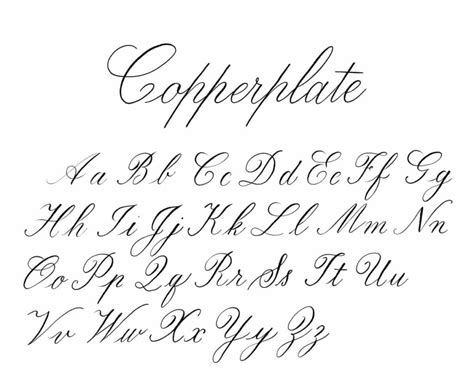 Copperplate
Aa Bb Cc Dd Ee Ff Gg
Hh Ii Jj Kk Ll Mm Nn
Oo Pp Qq Rr Ss Tt Uu
Vv Ww Xx Yy Zz